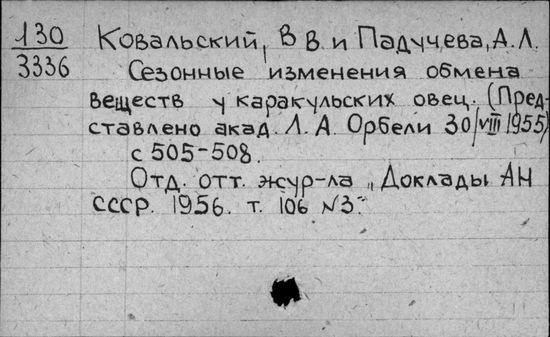 130
3336
Ковальский, В В. и Падучева, А. Л.
Сезонные изменения обмена
веществ у каракульских овец. (Пред-
ставлено акад. Л. А. Орбели 30/VIII 1955)
с 505-508.
Отд. отт. жур-ла „Доклады АН
СССР. 1956. т. 106 №3."